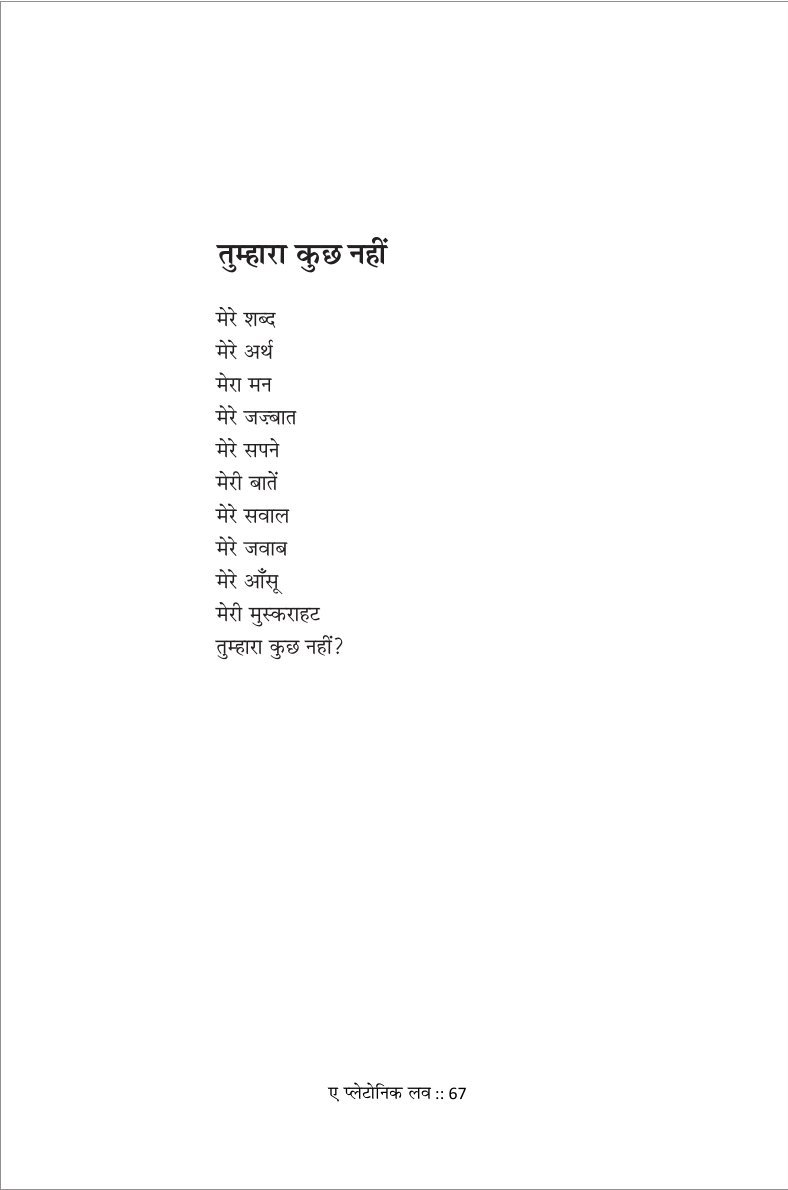 तुम्हारा कुछ नहीं
मेरे शब्द
मेरे अर्थ
मेरा मन
मेरे जज़्बात
मेरे सपने
मेरी बातें
मेरे सवाल
मेरे जवाब
मेरे आँसू
मेरी मुस्कराहट
तुम्हारा कुछ नहीं?
ए प्लेटोनिक लव :: 67